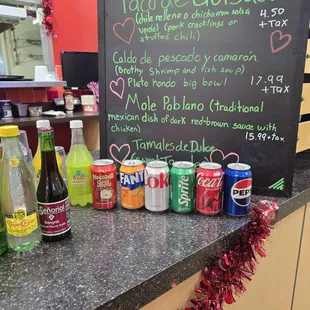 Taco de Guisado
(chile relleno o chicharron salsa
verde) (pork cracklings or
stuffed chili)
4.50
+Tax
Caldo de pescado y camarón.
(Brothy Shrimp and fish soup)
Plato hondo big bowl
17.99
+Tax
Mole Poblano (traditional
mexican dish of dark red-brown sauce with
chicken)
15.99+Tax
Tamales de Dulce
Sangria
FANTA
Coke
Sprite
Coca-Cola
pepsi